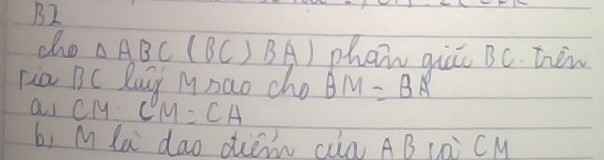 B2
cho Δ ABC (BC > BA) phân giác BC. trên
tia BC lấy M sao cho BM = BA
a, CM CM = CA
b, M là dao điểm của AB và CM